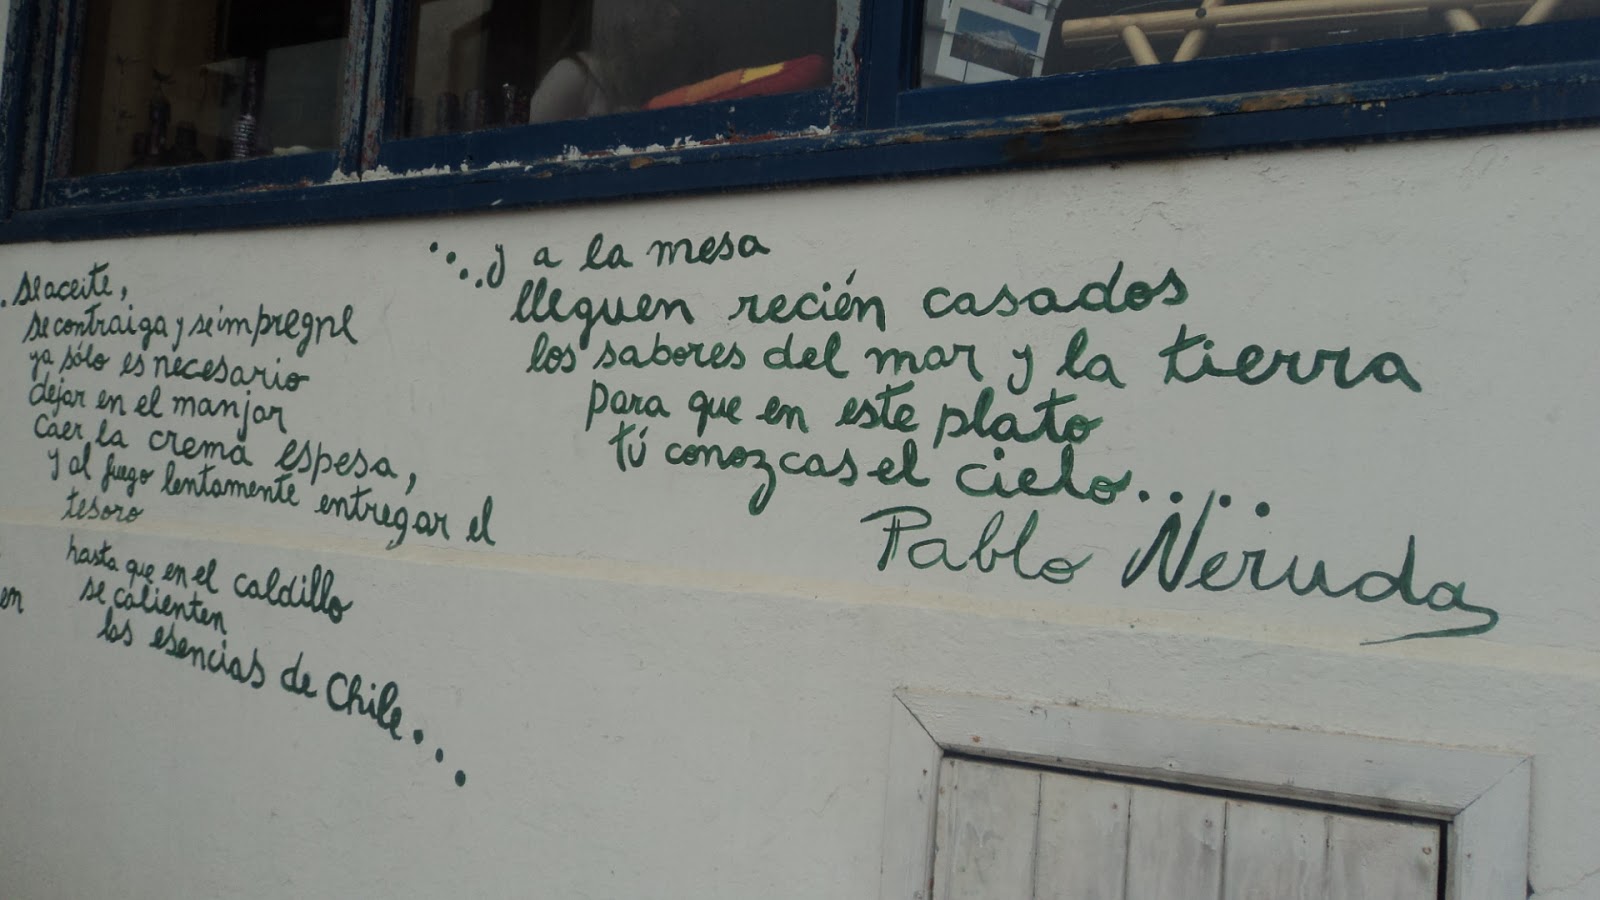 . se aceite,
se contraiga y se impregne
ya sólo es necesario
dejar en el manjar
caer la crema espesa,
y al fuego lentamente entregar el
tesoro
hasta que en el caldillo
se calienten
las esencias de Chile...
en
....y a la mesa
lleguen recién casados
los sabores del mar y la tierra
para que en este plato
tú conozcas el cielo.....
Pablo Neruda